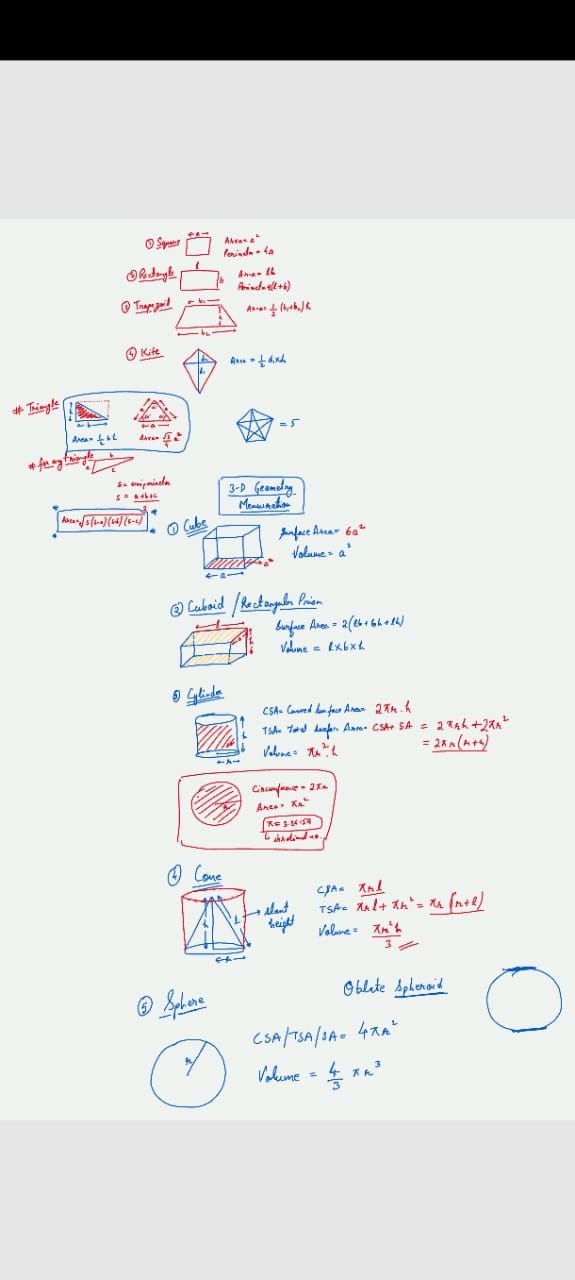 ← a →
① Square
Area = a²
Perimeter = 4a
l
② Rectangle
b
Area = lb
Perimeter = 2(l+b)
③ Trapezoid
← b₁ →
h
← b₂ →
Area = 1/2 (b₁+b₂) h
④ Kite
d₁
Area = 1/2 d₁xd₂
# Triangle
h
← b →
← a →
Area = 1/2 bh
Area = √3/4 a²
= 5
# for any triangle
a
b
c
s = semiperimeter
s = a+b+c / 2
Area = √s(s-a)(s-b)(s-c)
3-D Geometry
Mensuration
① Cube
a²
← a →
Surface Area = 6a²
Volume = a³
② Cuboid / Rectangular Prism
l
b
h
Surface Area = 2(lb+bh+lh)
Volume = l x b x h
③ Cylinder
h
← r →
CSA = Curved Surface Area = 2πr.h
TSA = Total Surface Area = CSA + SA = 2πrh + 2πr²
= 2πr(r+h)
Volume = πr².h
r
Circumference = 2πr
Area = πr²
π = 3.14159
↳ irrational no.
④ Cone
h
l
→ slant height
← r →
CSA = πrl
TSA = πrl + πr² = πr [r+l]
Volume = πr²h / 3
⑤ Sphere
Oblate Spheroid
r
CSA/TSA/SA = 4πr²
Volume = 4/3 πr³